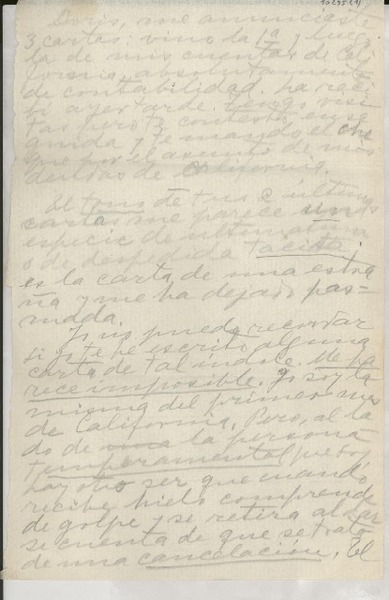 Doris, me anunciaste
3 cartas: vino la 1a y luego
la de mis cuentas de Cali
fornia, absolutamente
de contabilidad. La reci
bí ayer tarde. Tengo visi
tas pero te contesto en se
guida y te mando el che
que por el asunto de mis
deudas de California.
Al tono de tus 2 últimas
cartas me parece un
especie de ultimatum
o de despedida tácita:
es la carta de una extra
ña y me ha dejado pas-
madda.
Yo no puedo recordar
si yo te he escrito alguna
carta de tal índice. Me pa
rece imposible. Yo soy la
misma del primer mes
de California. Pero, al la
do de la persona
temperamental que soy,
hay otro ser que cuando
recibe hielo comprende
de golpe y se retira al dar
se cuenta de que se trata
de una cancelación. El